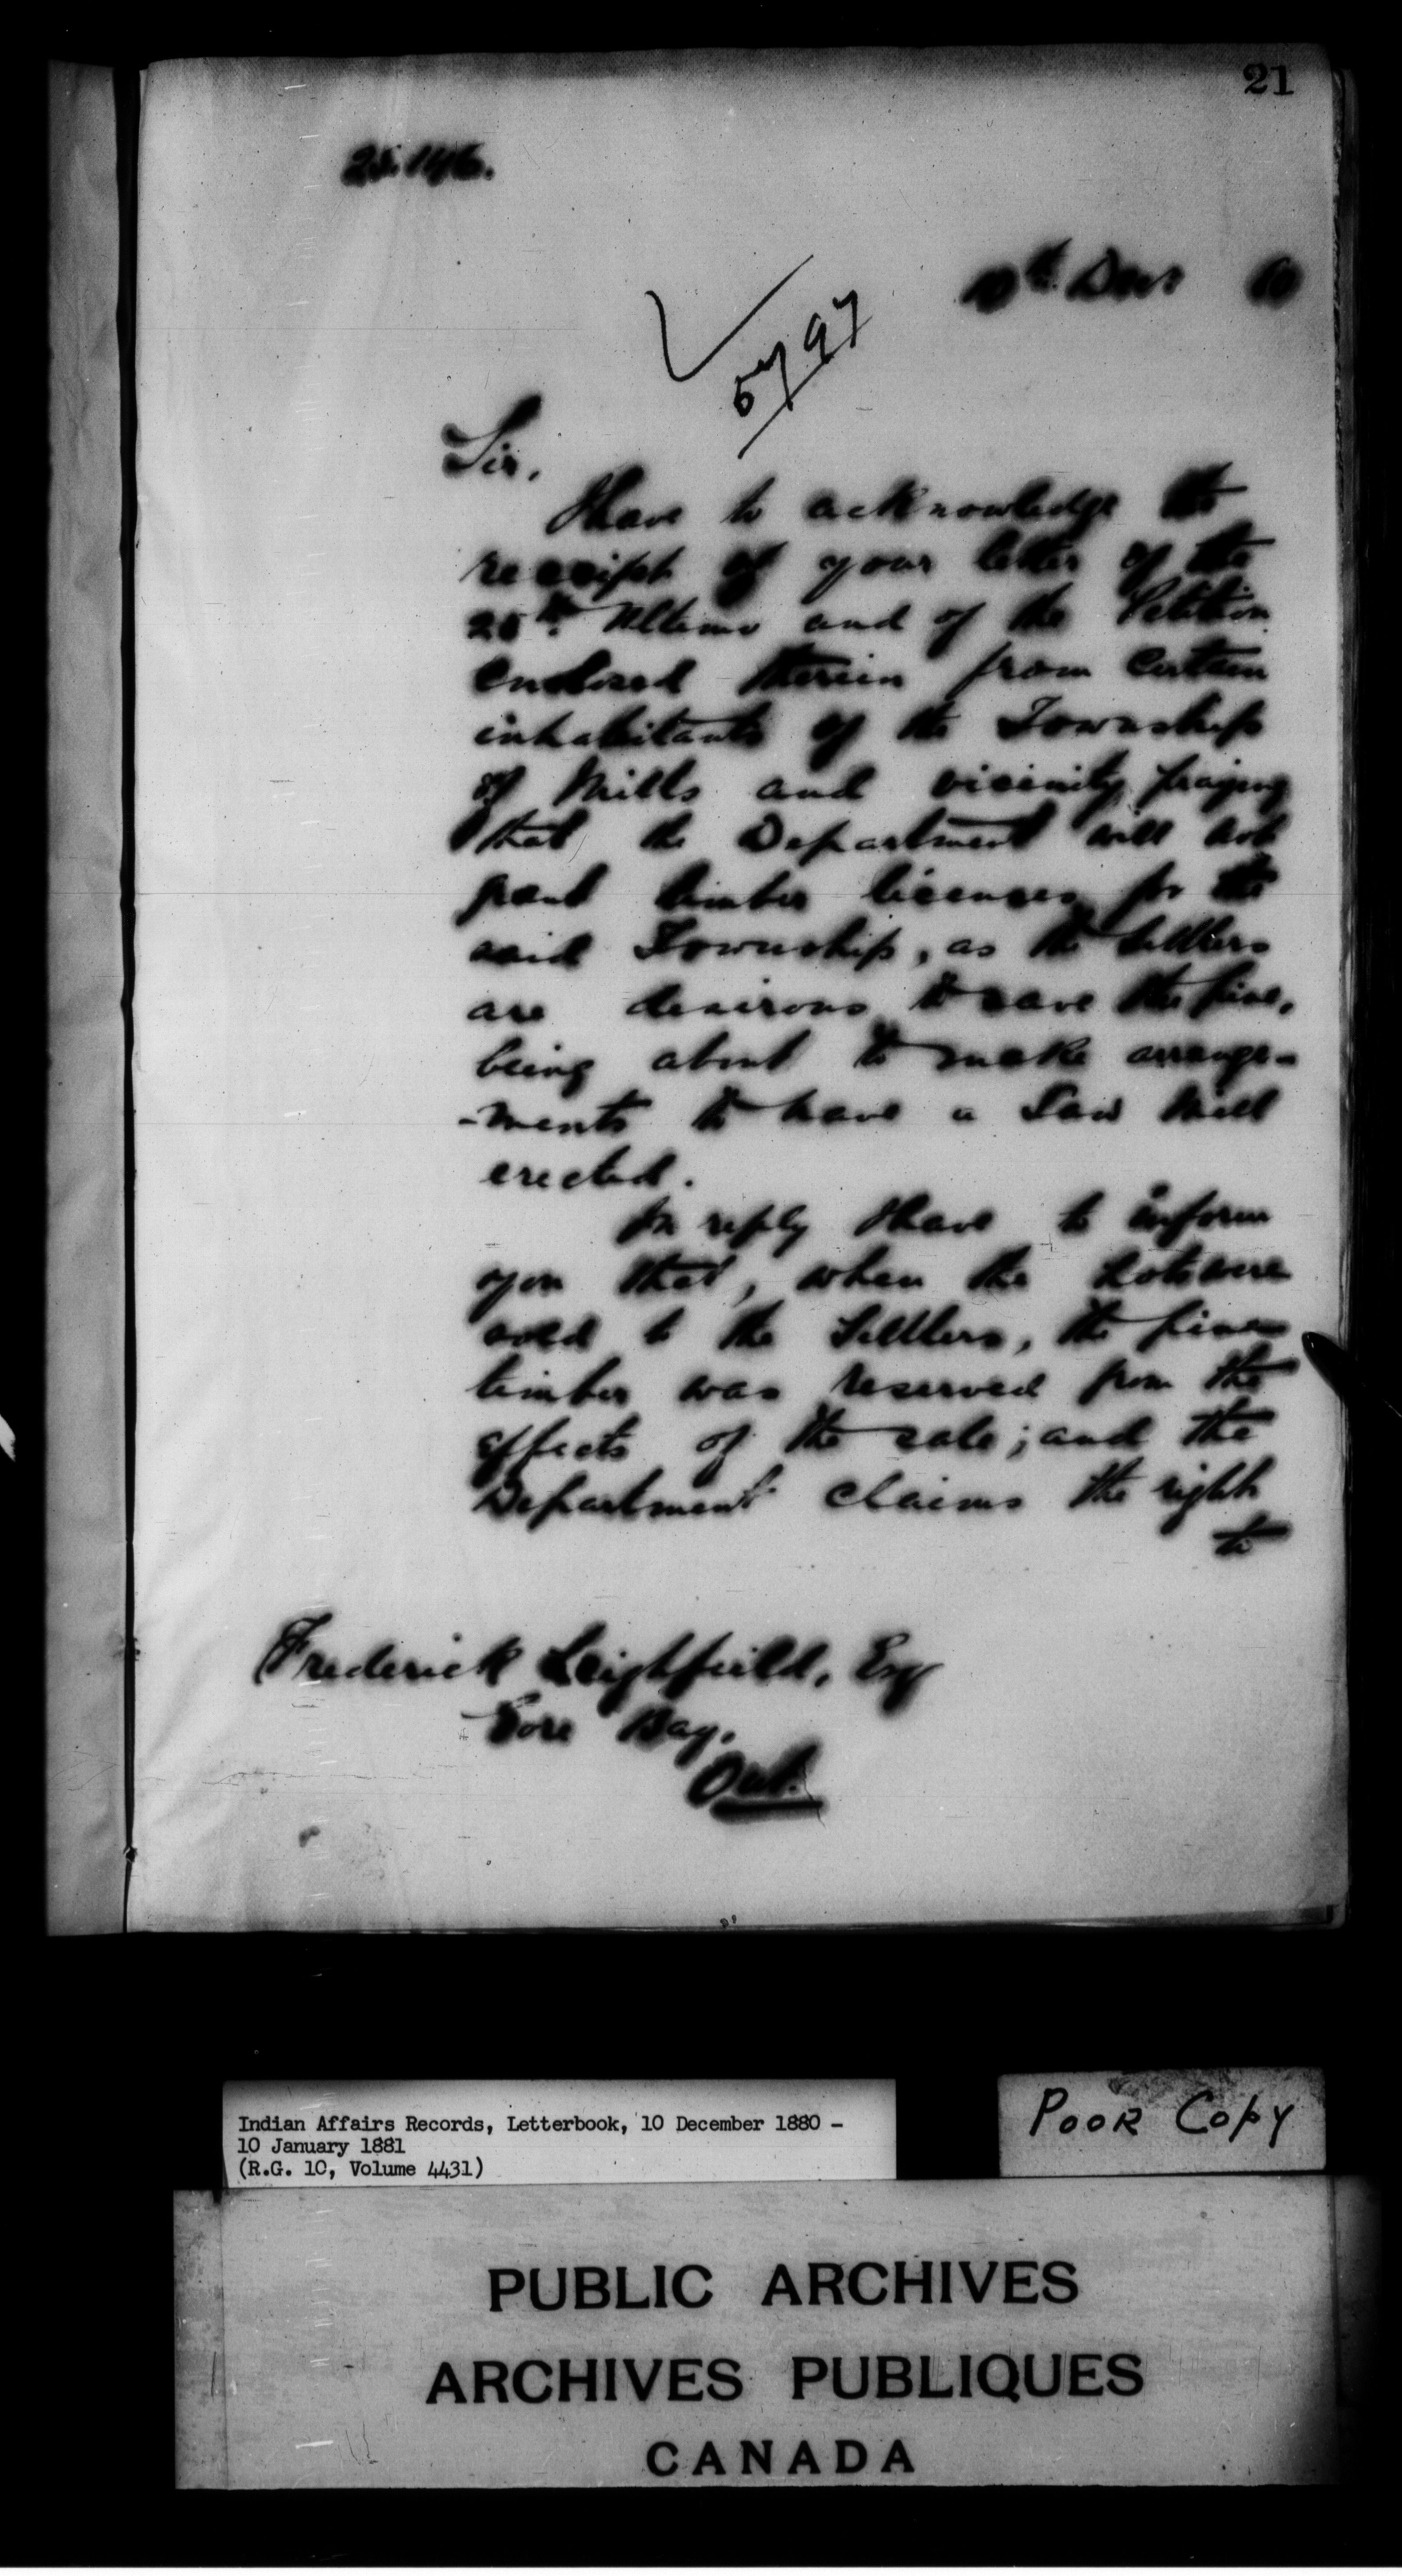 21
25.146.
10th Decr 80
5/97
Sir,
I have to acknowledge the
receipt of your letter of the
25th Ultimo and of the Petition
enclosed therein from certain
inhabitants of the Township
of Mills and vicinity praying
that the Department will not
grant timber licenses for the
said Township, as the Settlers
are desirous to save the pine,
being about to make arrange-
-ments to have a Saw Mill
erected.
In reply I have to inform
you that, when the Lots were
sold to the Settlers, the pine
timber was reserved from the
effects of the sale; and the
Department claims the right
to
Frederick Leighfield, Esq
Gore Bay.
Ont.
Indian Affairs Records, Letterbook, 10 December 1880 -
10 January 1881
(R.G. 10, Volume 4431)
POOR COPY
PUBLIC ARCHIVES
ARCHIVES PUBLIQUES
CANADA